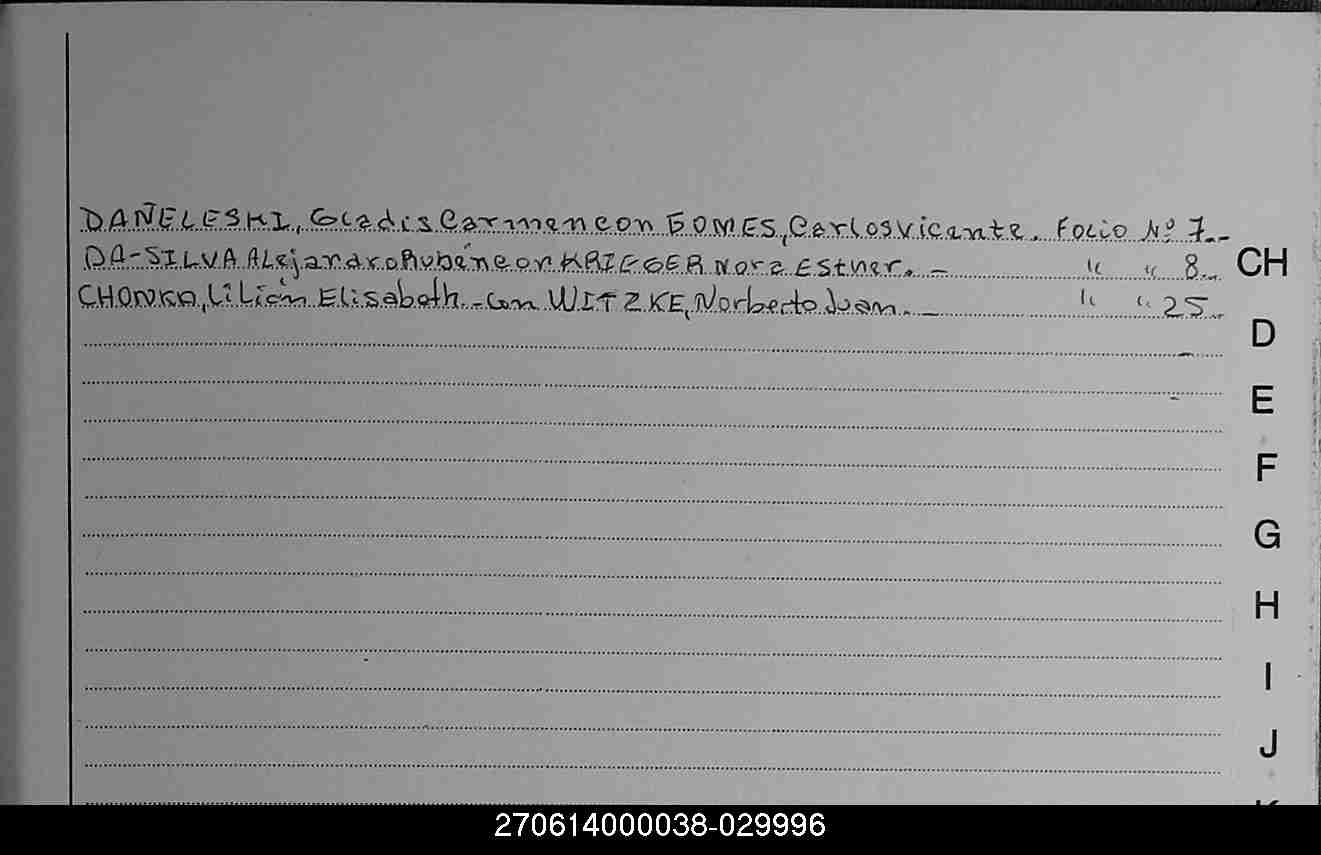 DAÑELESKI, Gladis Carmen con GOMES, Carlos Vicante. Folio Nº 7.-
DA-SILVA Alejandro Rubén con KRIEGER Nora Esther. - " " 8.-
CHONKO, Lilián Elisabeth - con WITZKE, Norberto Juan. - " " 25.-
CH
D
E
F
G
H
I
J
K
270614000038-029996